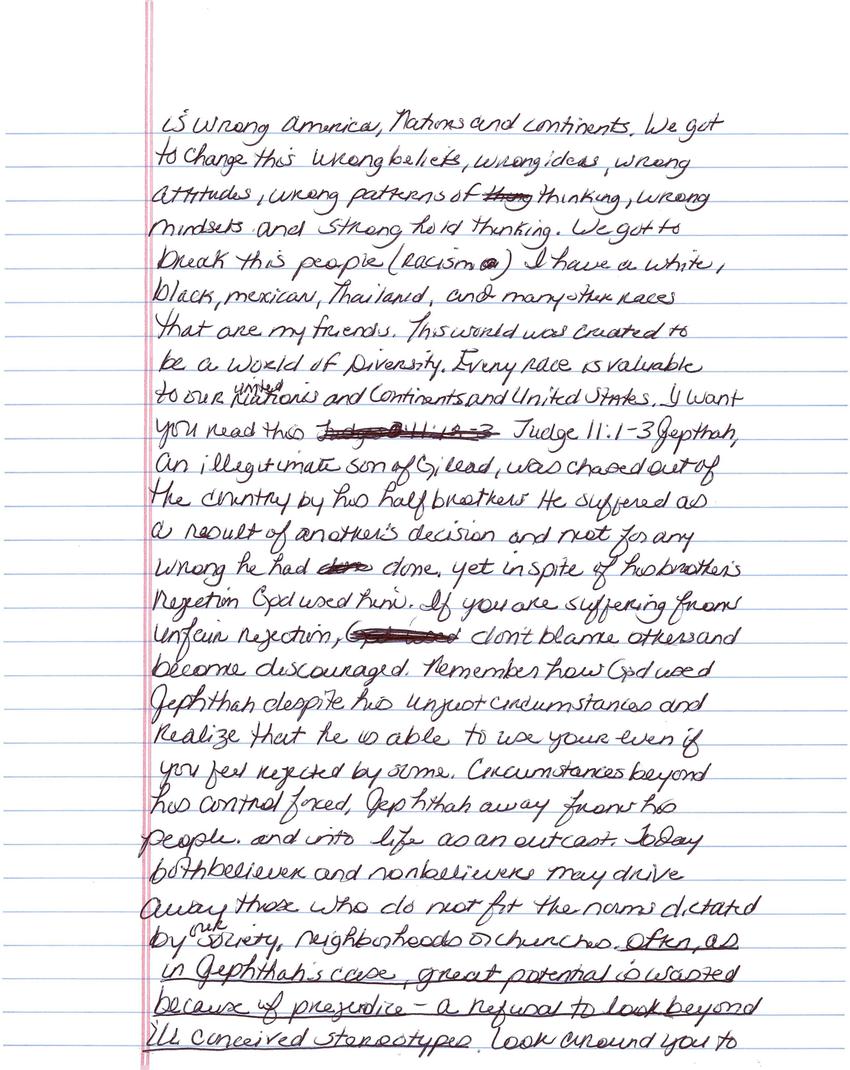 is wrong America, Nations and continents. We got
to change this wrong beliefs, wrong ideas, wrong
attitudes, wrong patterns of thing thinking, wrong
mindsets and strong hold thinking. We got to
break this people (racism) I have a white,
black, mexican, Thailand, and many other races
that are my friends. This world was created to
be a world of Diversity. Every race is valuable
to our united Nations and Continents and United States. I want
you read this Judge 11:12-3 Judge 11:1-3 Jepthah,
an illegitimate son of Gilead, was chased out of
the country by his half brothers He suffered as
a result of another's decision and not for any
wrong he had done done. yet in spite of his brother's
Rejection God used him. If you are suffering from
unfair rejection, God used don't blame others and
become discouraged. Remember how God used
Jephthah despite his unjust circumstances and
Realize that he is able to use your even if
you feel rejected by some. Circumstances beyond
his control forced, Jephthah away from his
people. and into life as an outcast. Today
both believer and nonbelievers may drive
away those who do not fit the norms dictated
by our society, neighborhoods or churches. often, as
in Jephthah's case, great potential is wasted
because of prejudice - a refusal to look beyond
ill conceived stereotypes. look around you to